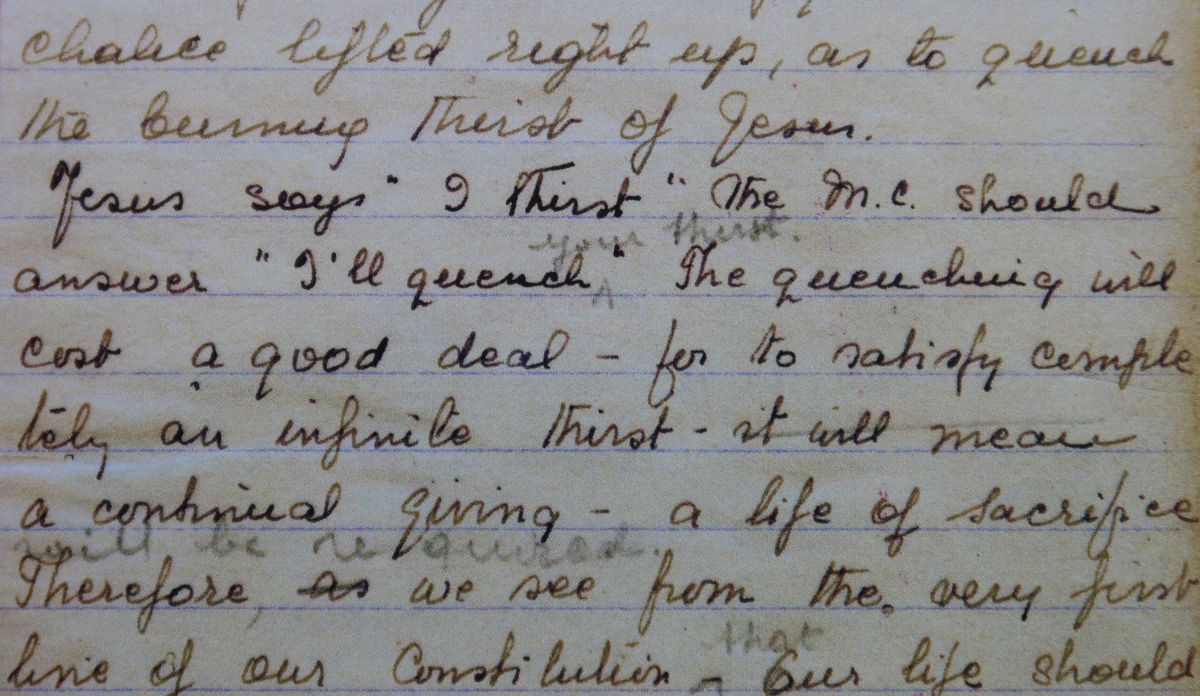 chalice lifted right up, as to quench
the burning Thirst of Jesus.
Jesus says " I thirst " The M.C. should
your thirst.
answer " I'll quench " The quenching will
cost a good deal - for to satisfy comple
tely an infinite thirst - it will mean
a continual giving - a life of sacrifice
will be required.
Therefore, as we see from the very first
that
line of our Constitution - Our life should